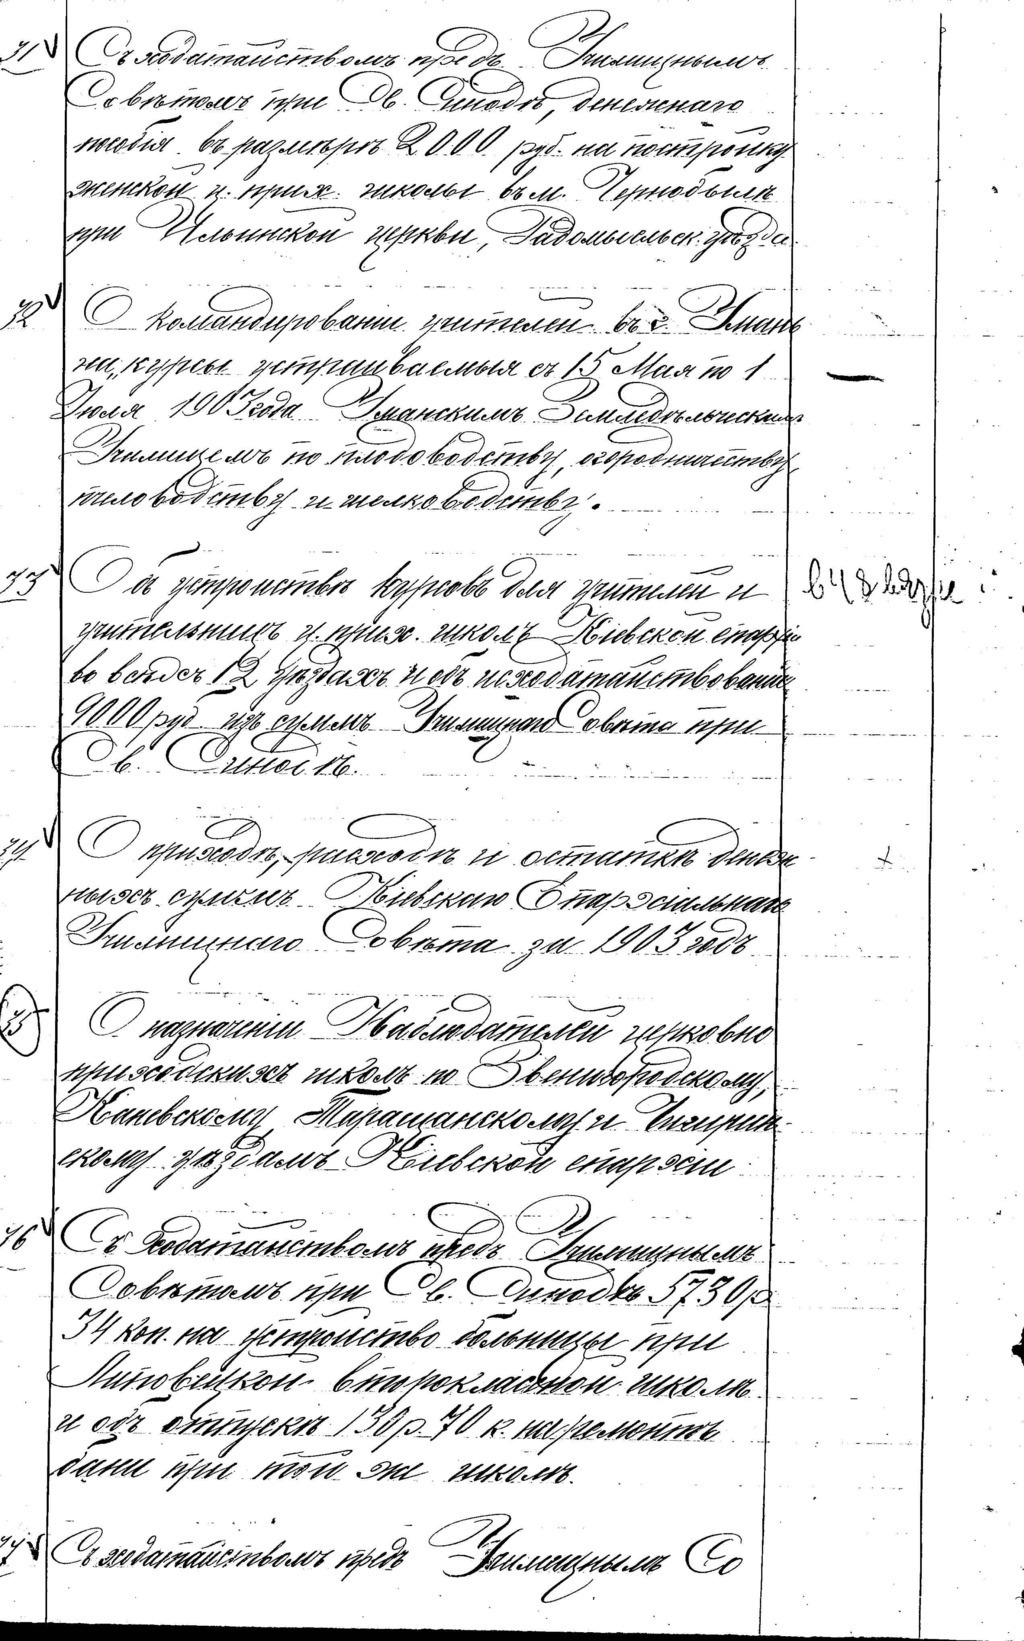 31 Съ ходатайствомъ предъ Училищнымъ
Совѣтомъ при Св. Синодѣ, денежнаго
пособія въ размѣрѣ 2000 руб. на постройку
женской ц. прих. школы въ м. Чернобылѣ
при Ильинской церкви, Радомысльск. уѣзда
32 О командированіи учителей въ г. Умань
на курсы устраиваемыя съ 15 Мая по 1
Іюля 1903 года Уманскимъ Земледѣльческимъ
Училищемъ по плодоводству, огородничеству,
пчеловодству и шелководству.
33 Объ устройствѣ курсовъ для учителей и
учительницъ ц. прих. школъ Кіевской епархіи
во всѣхъ 12 уѣздахъ и объ исходатайствованіи
9000 руб изъ суммъ Училищнаго Совѣта при
Св. Синодѣ.
34 О приходѣ, расходѣ и остаткѣ денеж
ныхъ суммъ Кіевскаго Епархіальнаго
Училищнаго Совѣта за 1903 годъ
35 О назначеніи Наблюдателей церковно
приходскихъ школъ по Звенигородскому,
Каневскому Таращанскому и Чигирин-
скому уѣздамъ Кіевской епархіи
36 Съ ходатайствомъ предъ Училищнымъ
Совѣтомъ при Св. Синодѣ 5730 р
34 коп. на устройство больницы при
Липовецкой второклассной школѣ
и объ отпускѣ 130 р. 70 к. на ремонтъ
бани при той же школѣ.
37 Съ ходатайствомъ предъ Училищнымъ Со